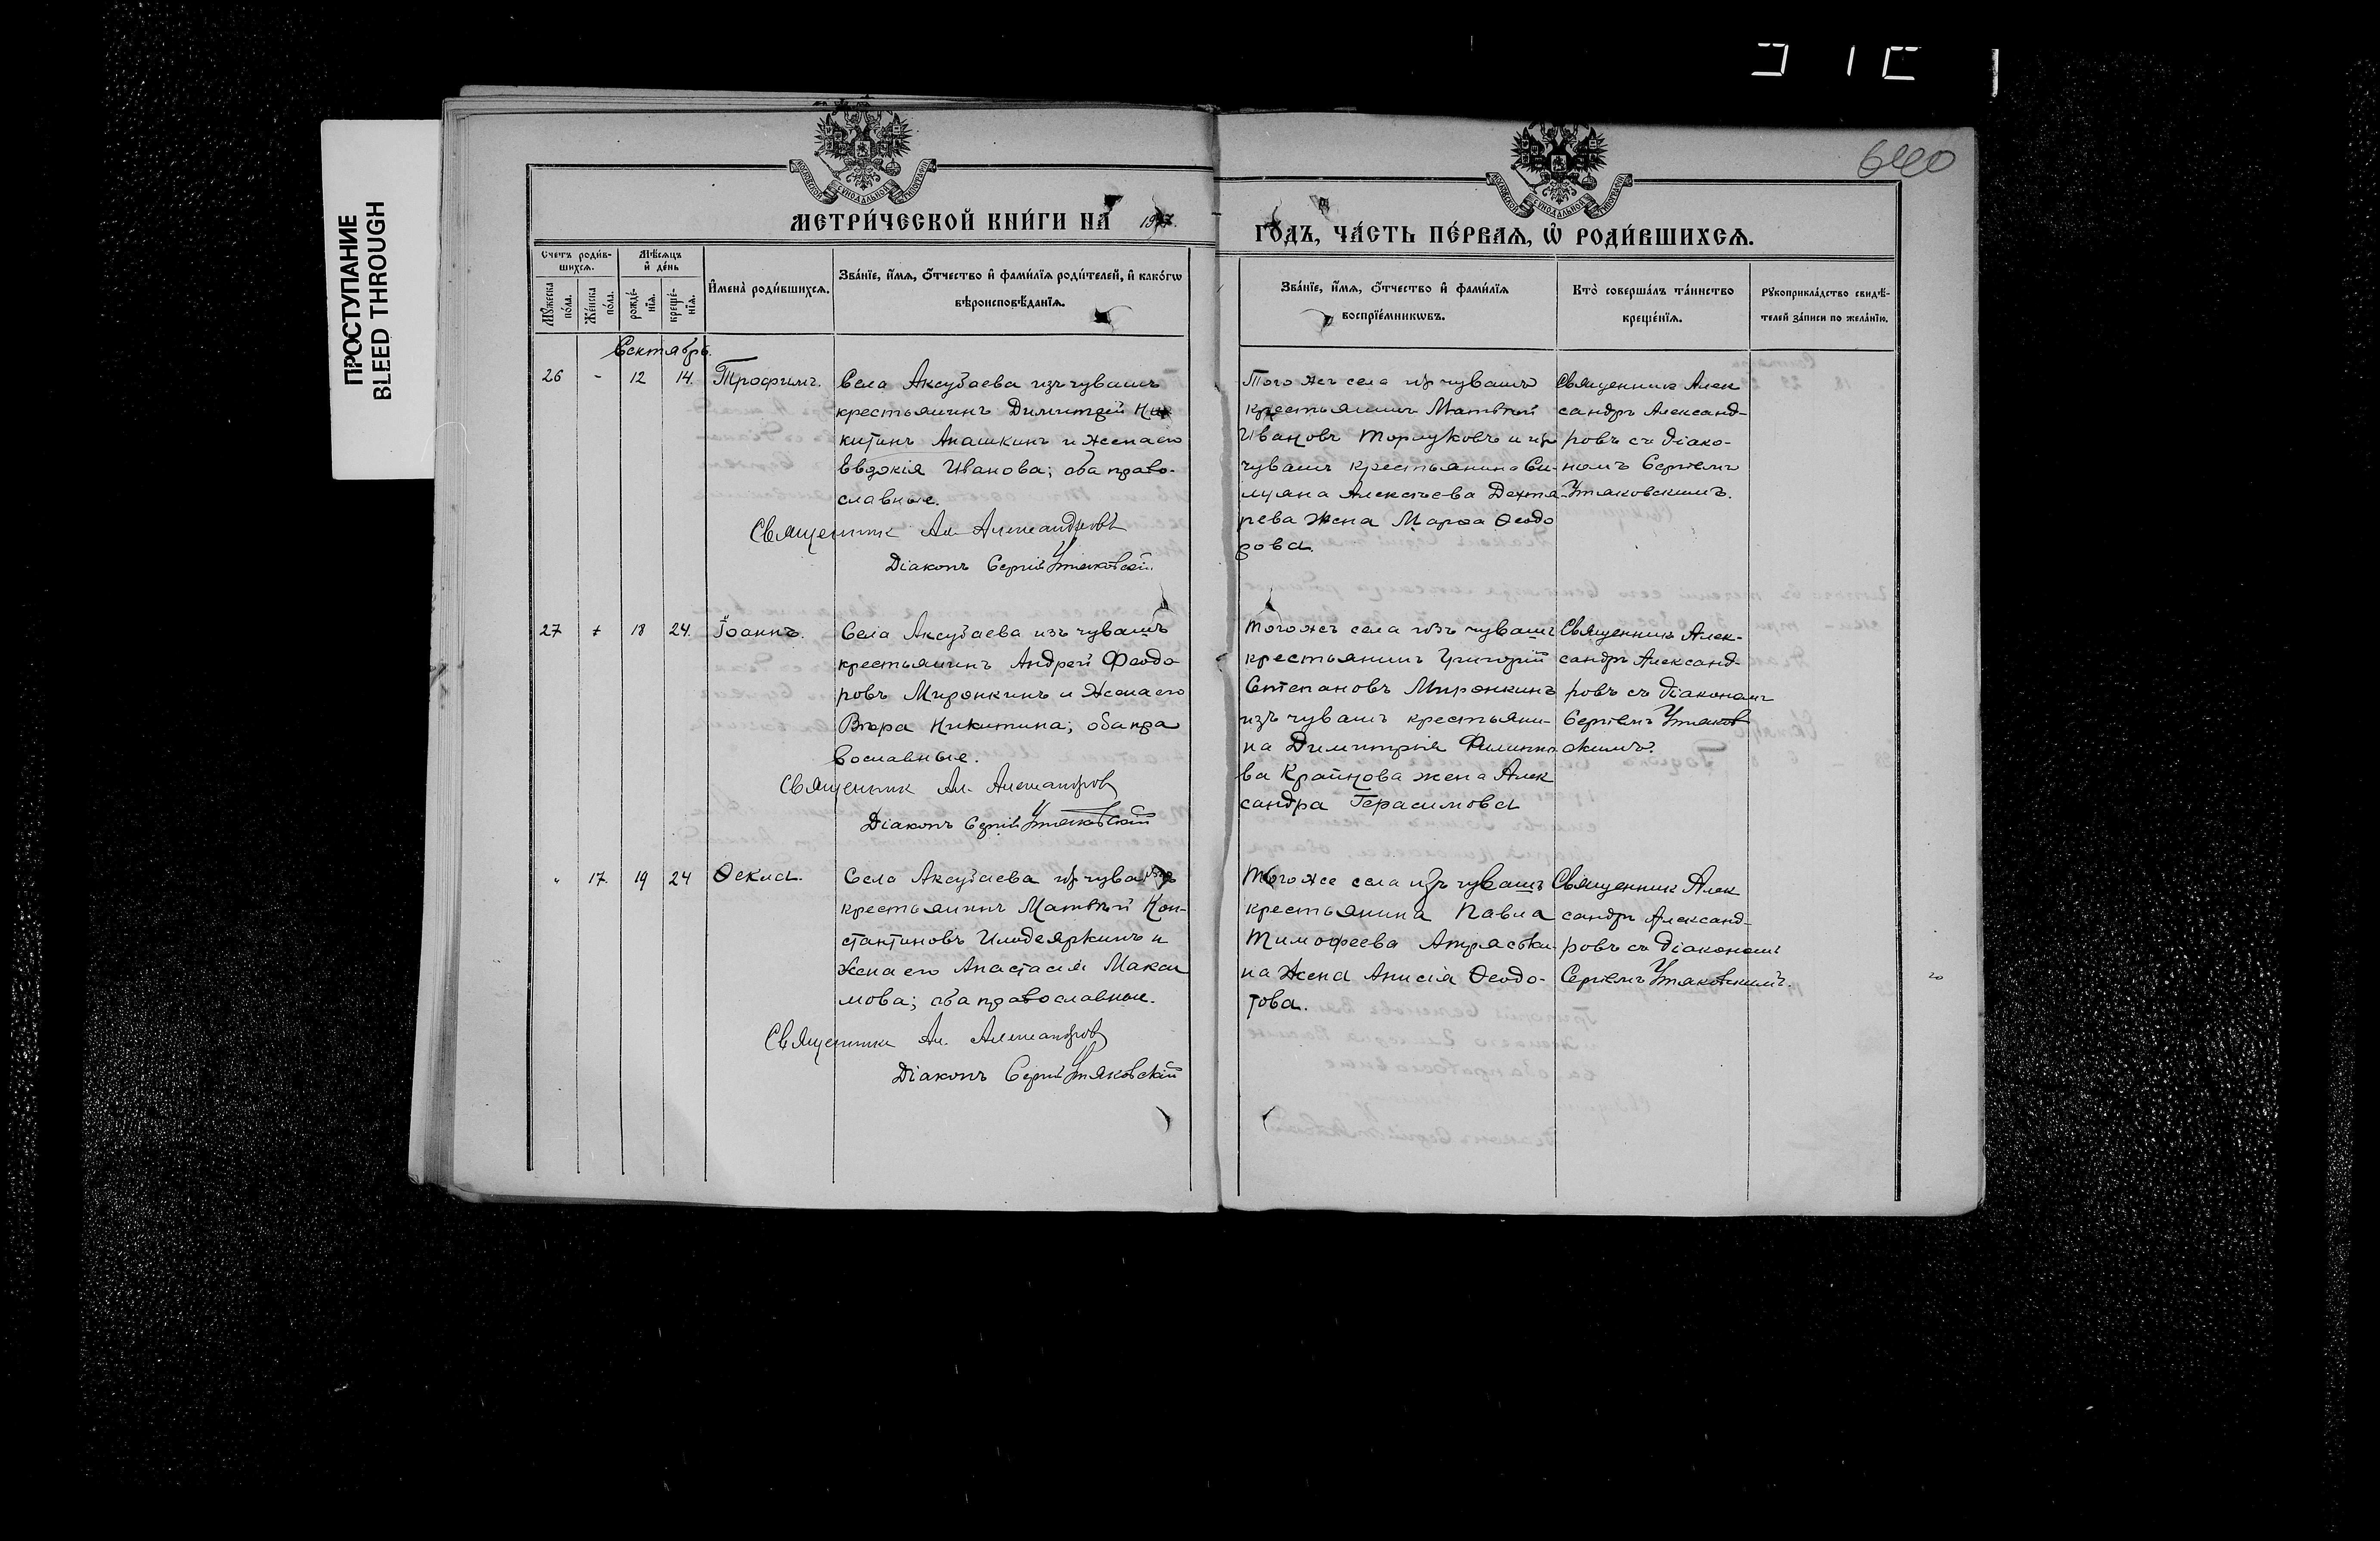 ПРОСТУПАНИЕ
BLEED THROUGH
640
МОСКОВСКОЙ СѴНОДАЛЬНОЙ ТИПОГРАФІИ
МОСКОВСКОЙ СѴНОДАЛЬНОЙ ТИПОГРАФІИ
МЕТРИ́ЧЕСКОЙ КНИ́ГИ НА
ГО́ДЪ, ЧА́СТЬ ПЕ́РВАЯ, Ѡ҆ РОДИ́ВШИХСЯ.
Счетъ роди́в-
шихся.
Мѣ́сяцъ
и҆ де́нь
Мꙋ́жеска
по́ла.
Же́нска
по́ла.
рожде́-
нїя.
креще́-
нїя.
И҆мена̀ роди́вшихся.
Зва́нїе, и҆́мя, ѻ҆́тчество и҆ фами́лїя роди́телей, и҆ како́гѡ
вѣроисповѣ́данїя.
Зва́нїе, и҆́мя, ѻ҆́тчество и҆ фами́лїя
воспрїе́мникѡвъ.
Кто̀ соверша́лъ та́инство
креще́нїя.
Рꙋкоприкла́дство свидѣ́-
телей за́писи по жела́нїю.
Сентябрь.
26 - 12 14. Трофимъ.
Села Аксубаева изъ чувашъ
крестьянинъ Димитрій Ни
китинъ Анашкинъ и жена его
Евдокія Иванова; оба право-
славные.
Священник Ал. Александровъ
Діаконъ Сергій Утяковскій.
Того же села изъ чувашъ
крестьянинъ Матвѣй
Ивановъ и изъ
чувашъ крестьянина Си-
луана Алексѣева Дехтя-
рева жена Марѳа Ѳеодо
рова.
Священникъ Алек
сандръ Александ-
ровъ съ діако-
номъ Сергіемъ
Утяковскимъ.
27 18 24. Іоаннъ.
Села Аксубаева изъ чувашъ
крестьянинъ Андрей Феодо
ровъ Миронкинъ и жена его
Вѣра Никитина; оба пра
вославные.
Священник Ал. Александров
Діаконъ Сергій Утяковскій
Того же села изъ чувашъ
крестьянинъ Григорій
Степановъ Миронкинъ
изъ чувашъ крестьяни-
на Димитрія Филиппо
ва Крайнова жена Алек
сандра Герасимова
Священникъ Алек-
сандръ Александ-
ровъ съ діакономъ
Сергіемъ Утяков
скимъ.
" 17. 19 24 Ѳекла.
Села Аксубаева изъ чувашъ
крестьянинъ Матвѣй Кон-
стантиновъ и
жена его Анастасія Макси
мова; оба православные.
Священник Ал. Александров
Діаконъ Сергій Утяковскій
Того же села изъ чувашъ
крестьянина Павла
Тимофеева Атряськи-
на жена Анисія Ѳеодо-
това.
Священник Алек
сандръ Александ-
ровъ съ діакономъ
Сергіемъ Утяковскимъ.